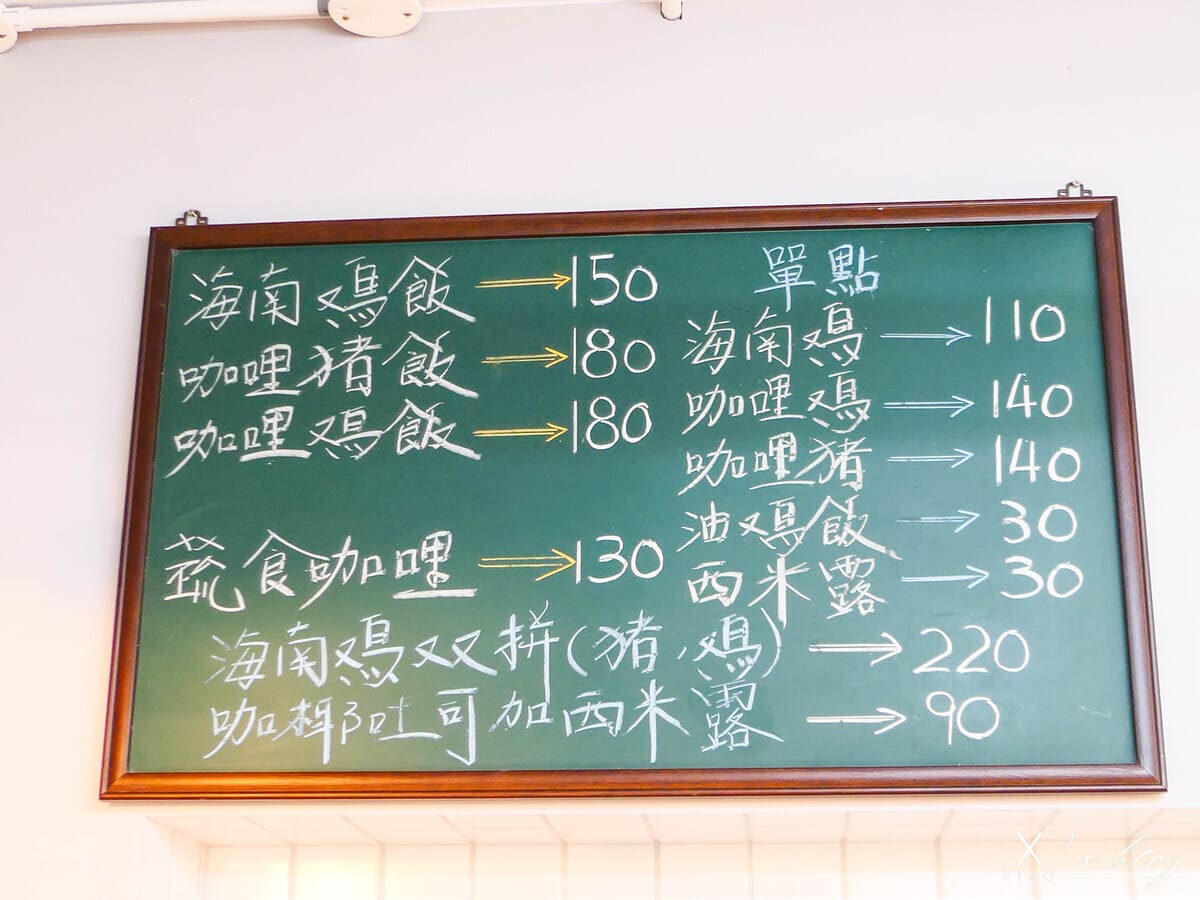 海南鸡飯 → 150
咖哩猪飯 → 180
咖哩鸡飯 → 180
蔬食咖哩 → 130
單點
海南鸡 → 110
咖哩鸡 → 140
咖哩猪 → 140
油鸡飯 → 30
西米露 → 30
海南鸡双拼(猪、鸡) → 220
咖椰吐司加西米露 → 90
X's blog